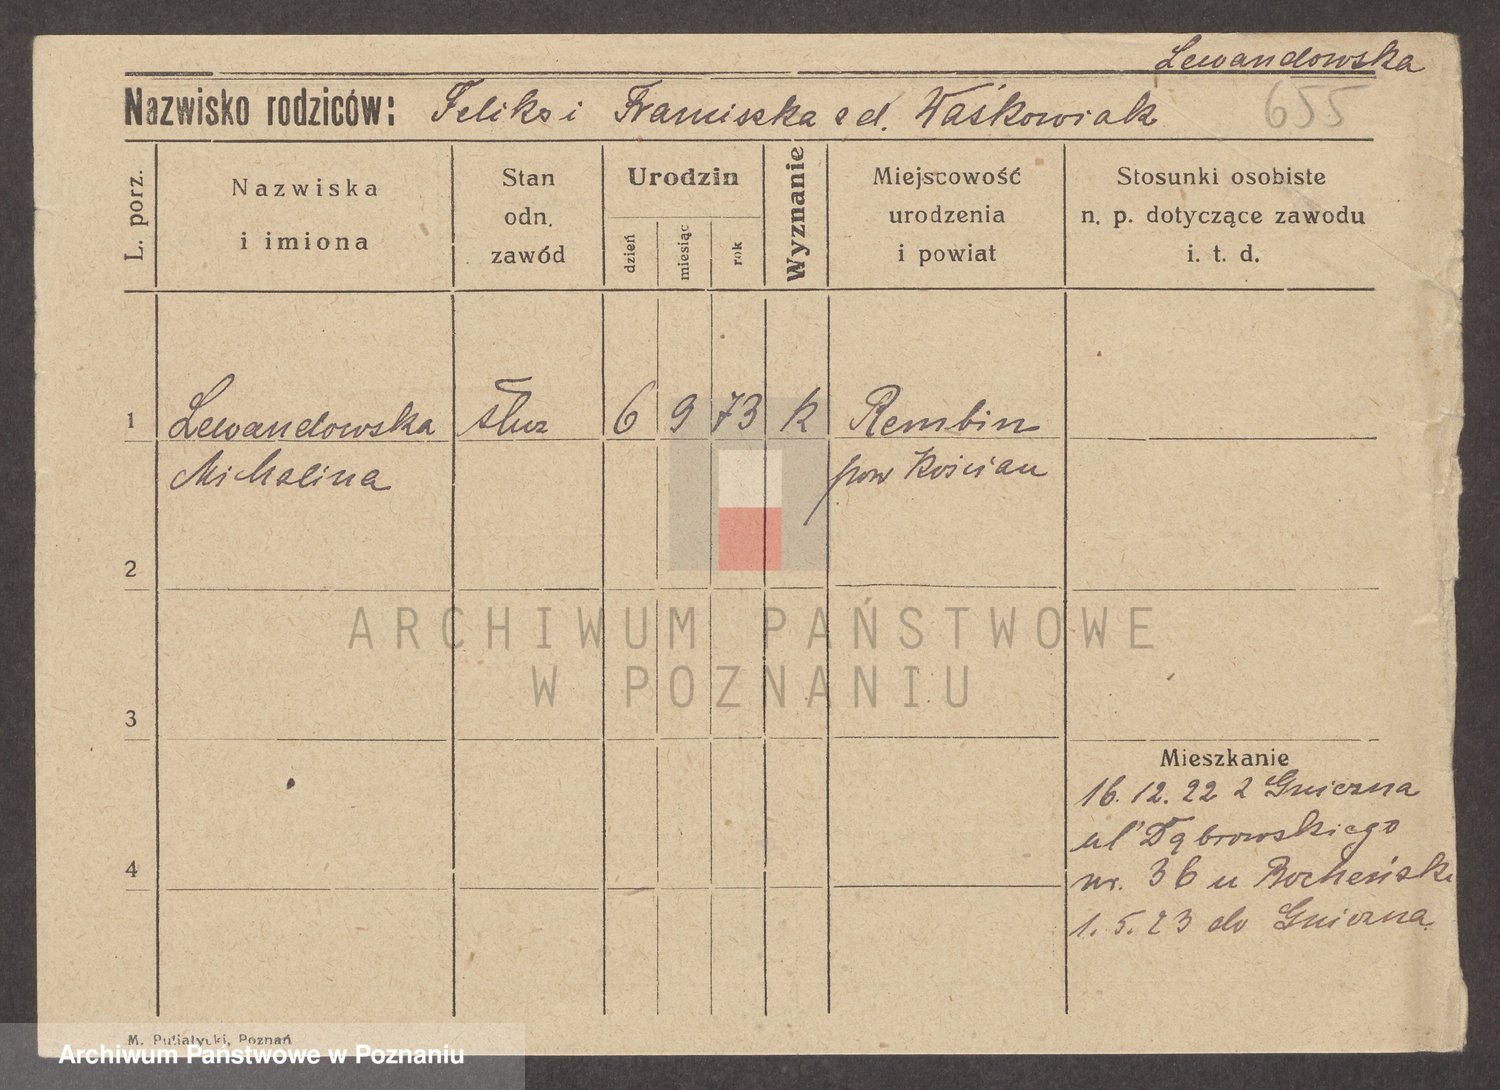 Lewandowska
Nazwisko rodziców: Feliks i Franciszka z d. Waśkowiak
655
L. porz.
Nazwiska
i imiona
Stan
odn.
zawód
Urodzin
dzień
miesiąc
rok
Wyznanie
Miejscowość
urodzenia
i powiat
Stosunki osobiste
n. p. dotyczące zawodu
i. t. d.
1 Lewandowska służ 6 9 73 k Rembin
Michalina pow Kościan
2
3
Mieszkanie
16. 12. 22 z Gniezna
ul Dąbrowskiego
4
nr. 36 u
1. 5. 23 do Gniezna
M. Putiatycki, Poznań
ARCHIWUM PAŃSTWOWE
W POZNANIU
Archiwum Państwowe w Poznaniu